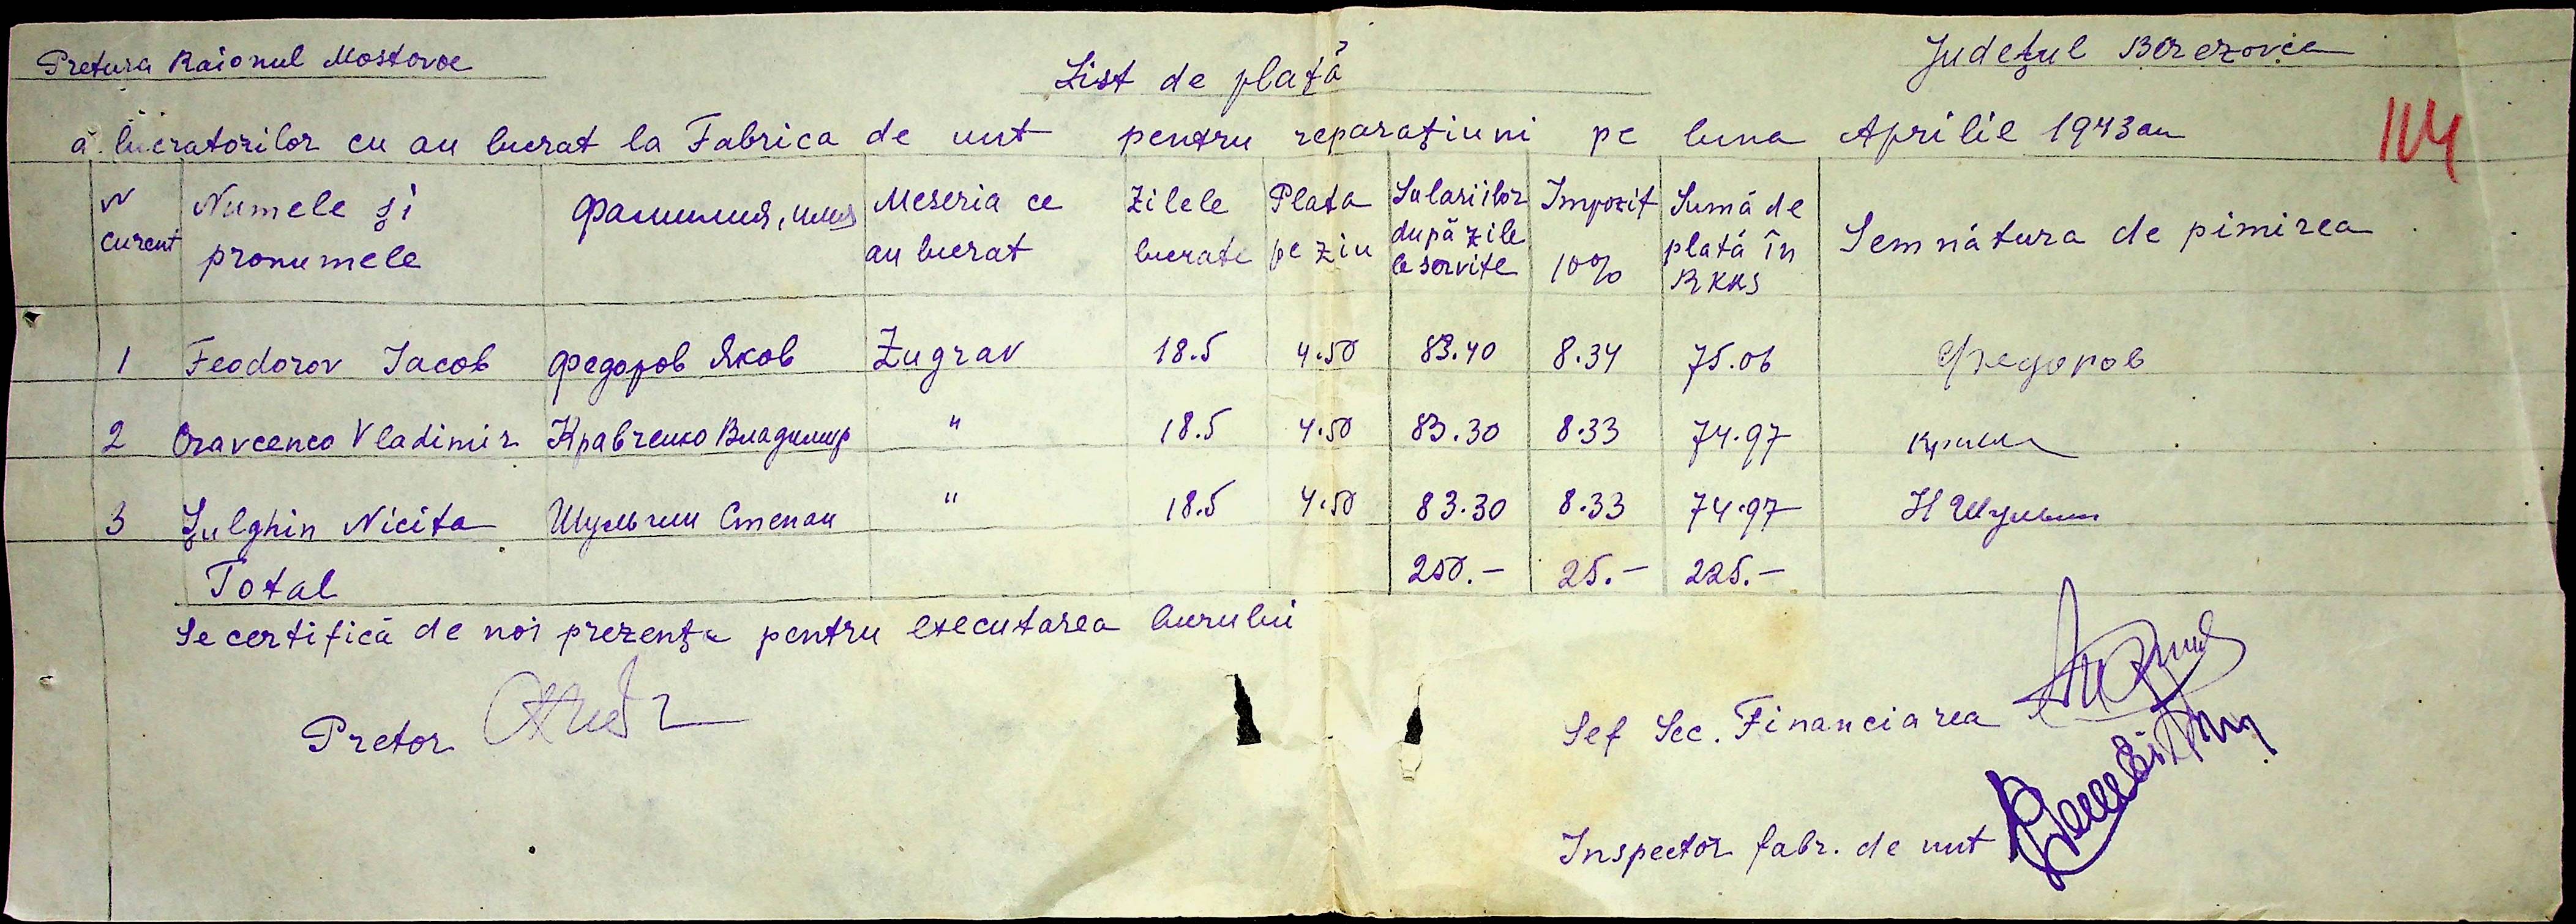 Pretura Raionul Mostovoe
Județul Berezovca
List de plată
a lucratorilor cu au lucrat la Fabrica de unt pentru reparațiuni pe luna Aprilie 1943 an
114
N curent Numele și pronumele Фамилия, имя Meseria ce au lucrat Zilele lucrate Plata pe ziu Salariilor după zile le servite Impozit 10% Sumă de plată în RKKS Semnătura de pimirea
1 Feodorov Iacob Федоров Яков Zugrav 18.5 4.50 83.40 8.34 75.06 Федоров
2 Cravcenco Vladimir Кравченко Владимир " 18.5 4.50 83.30 8.33 74.97
3 Șulghin Nicita Шульгин Степан " 18.5 4.50 83.30 8.33 74.97 Н Шульгин
Total 250.— 25.— 225.—
Se certifică de noi prezența pentru executarea lucrului
Pretor
Sef Sec. Financiarea
Inspector fabr. de unt